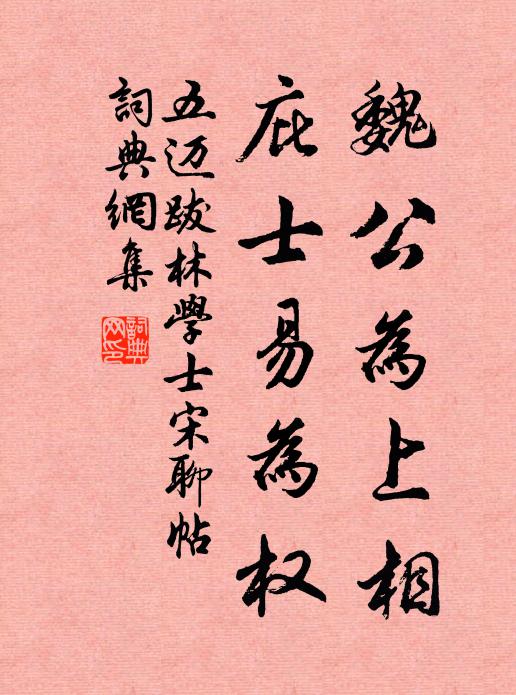 魏公為上相
庇士易為权
五迈跋林學士宋聊帖
詞典網集
詞典網印